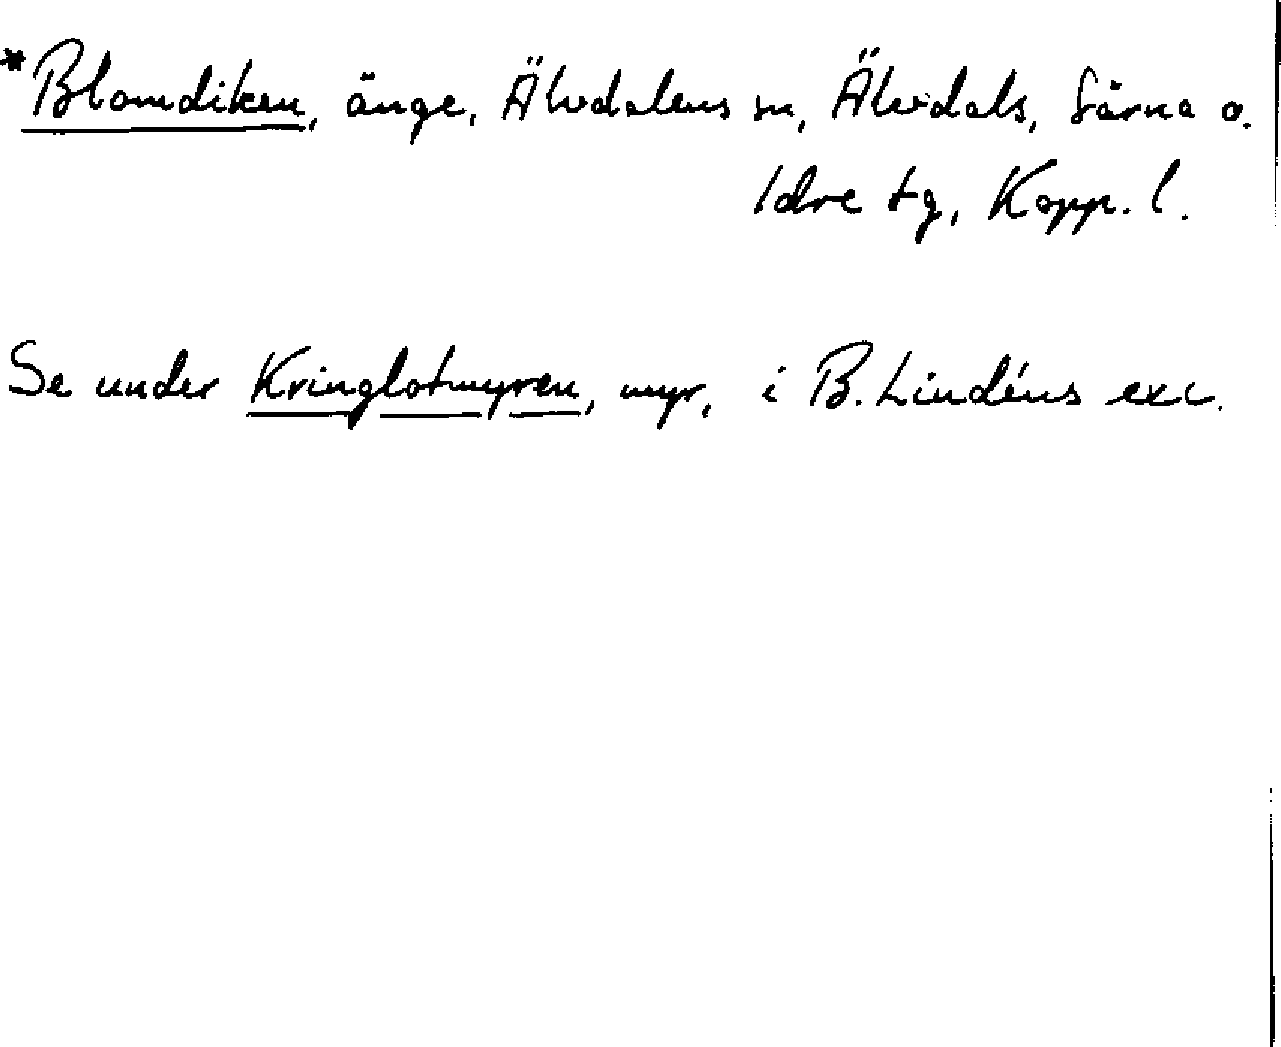 *Blomdiken, änge, Älvdalens sn, Älvdals, Särna o.
Idre tg, Kopp. l.
Se under Kringlotmyren, myr, i B. Lindéns exc.